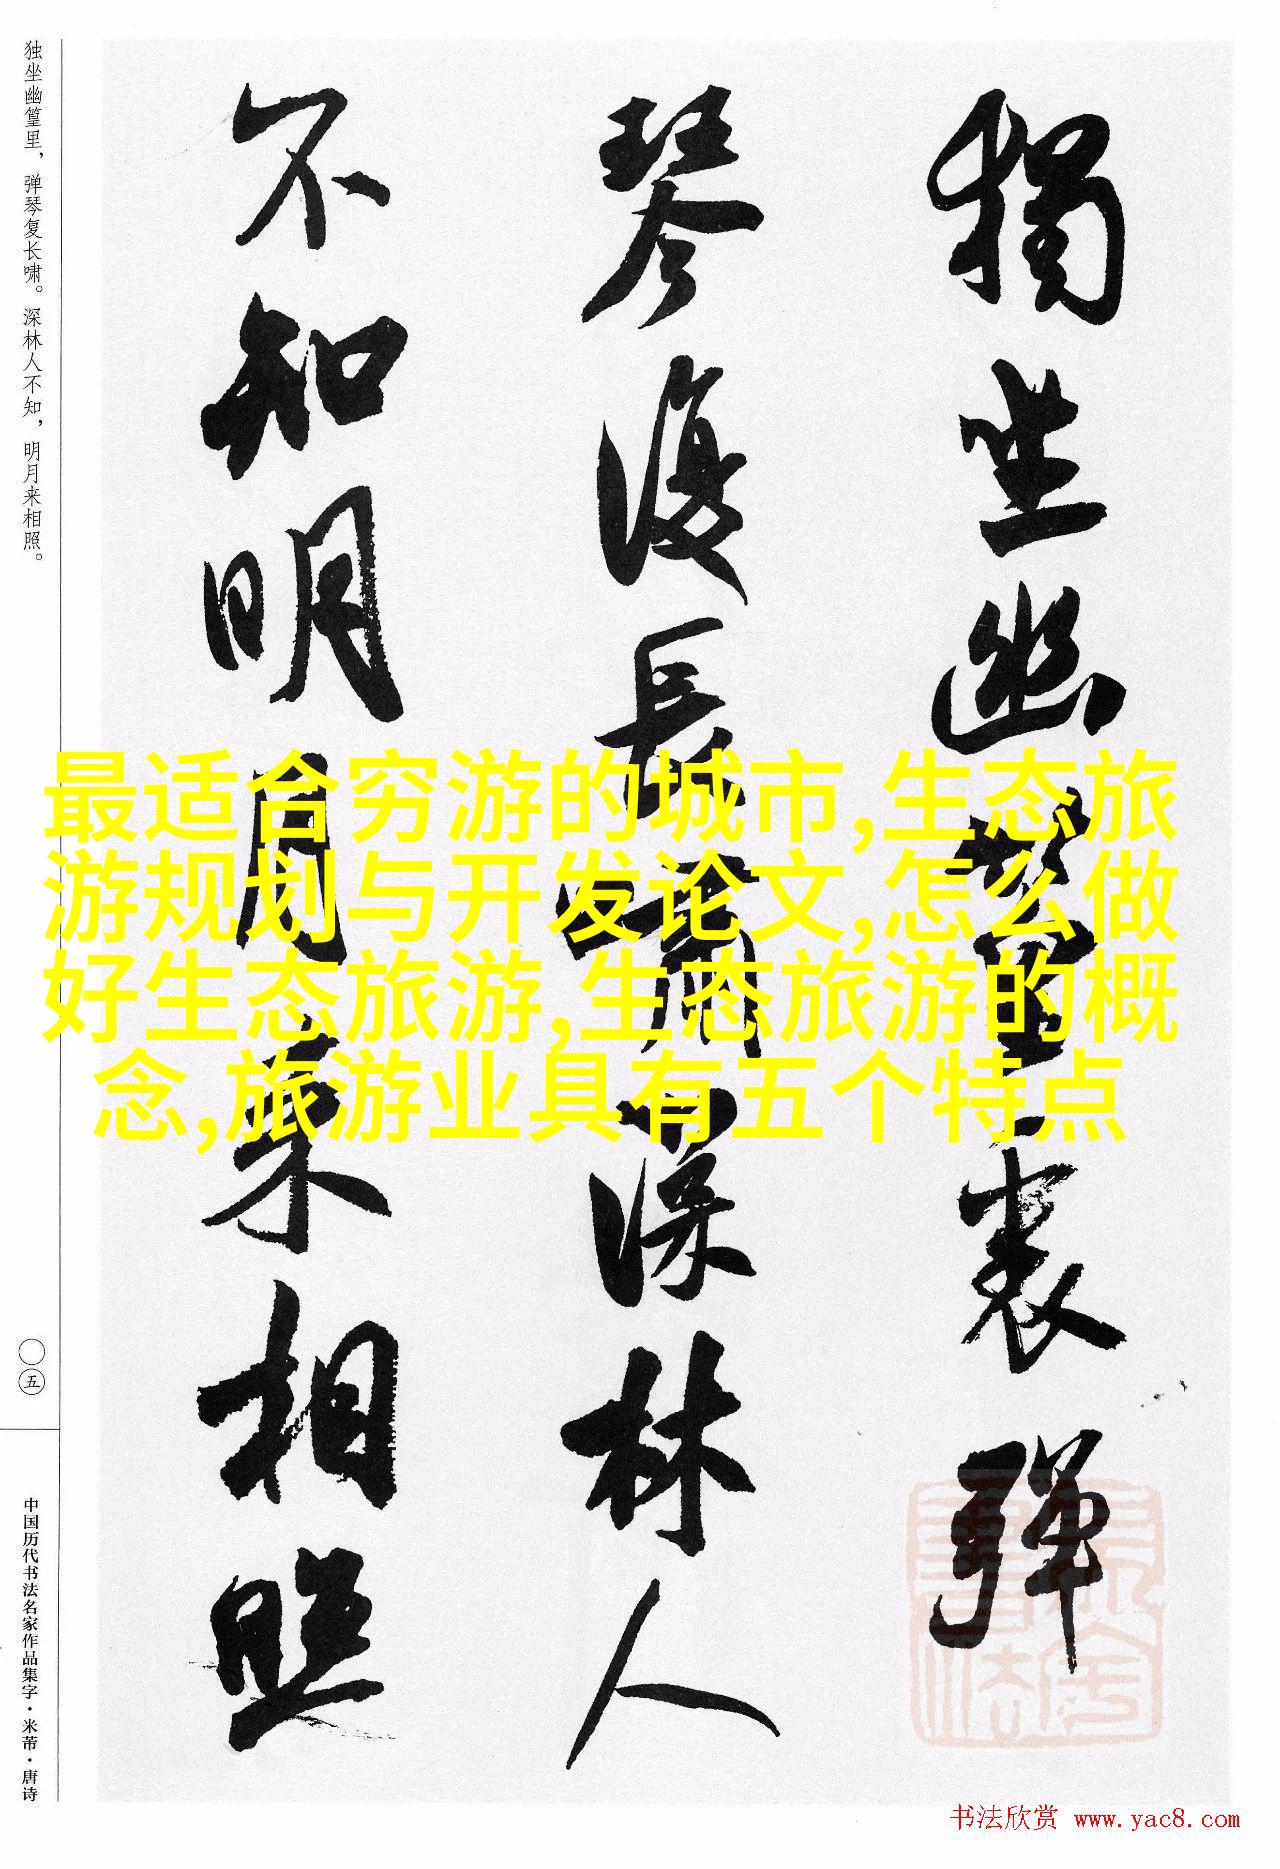 獨坐幽篁裏彈
琴復長嘯深林人
不知明月來相照
独坐幽篁里，弹琴复长啸。深林人不知，明月来相照。
〇五
中国历代书法名家作品集字·米芾·唐诗
最适合穷游的城市,生态旅
游规划与开发论文,怎么做
好生态旅游,生态旅游的概
念,旅游业具有五个特点
书法欣赏 www.yac8.com